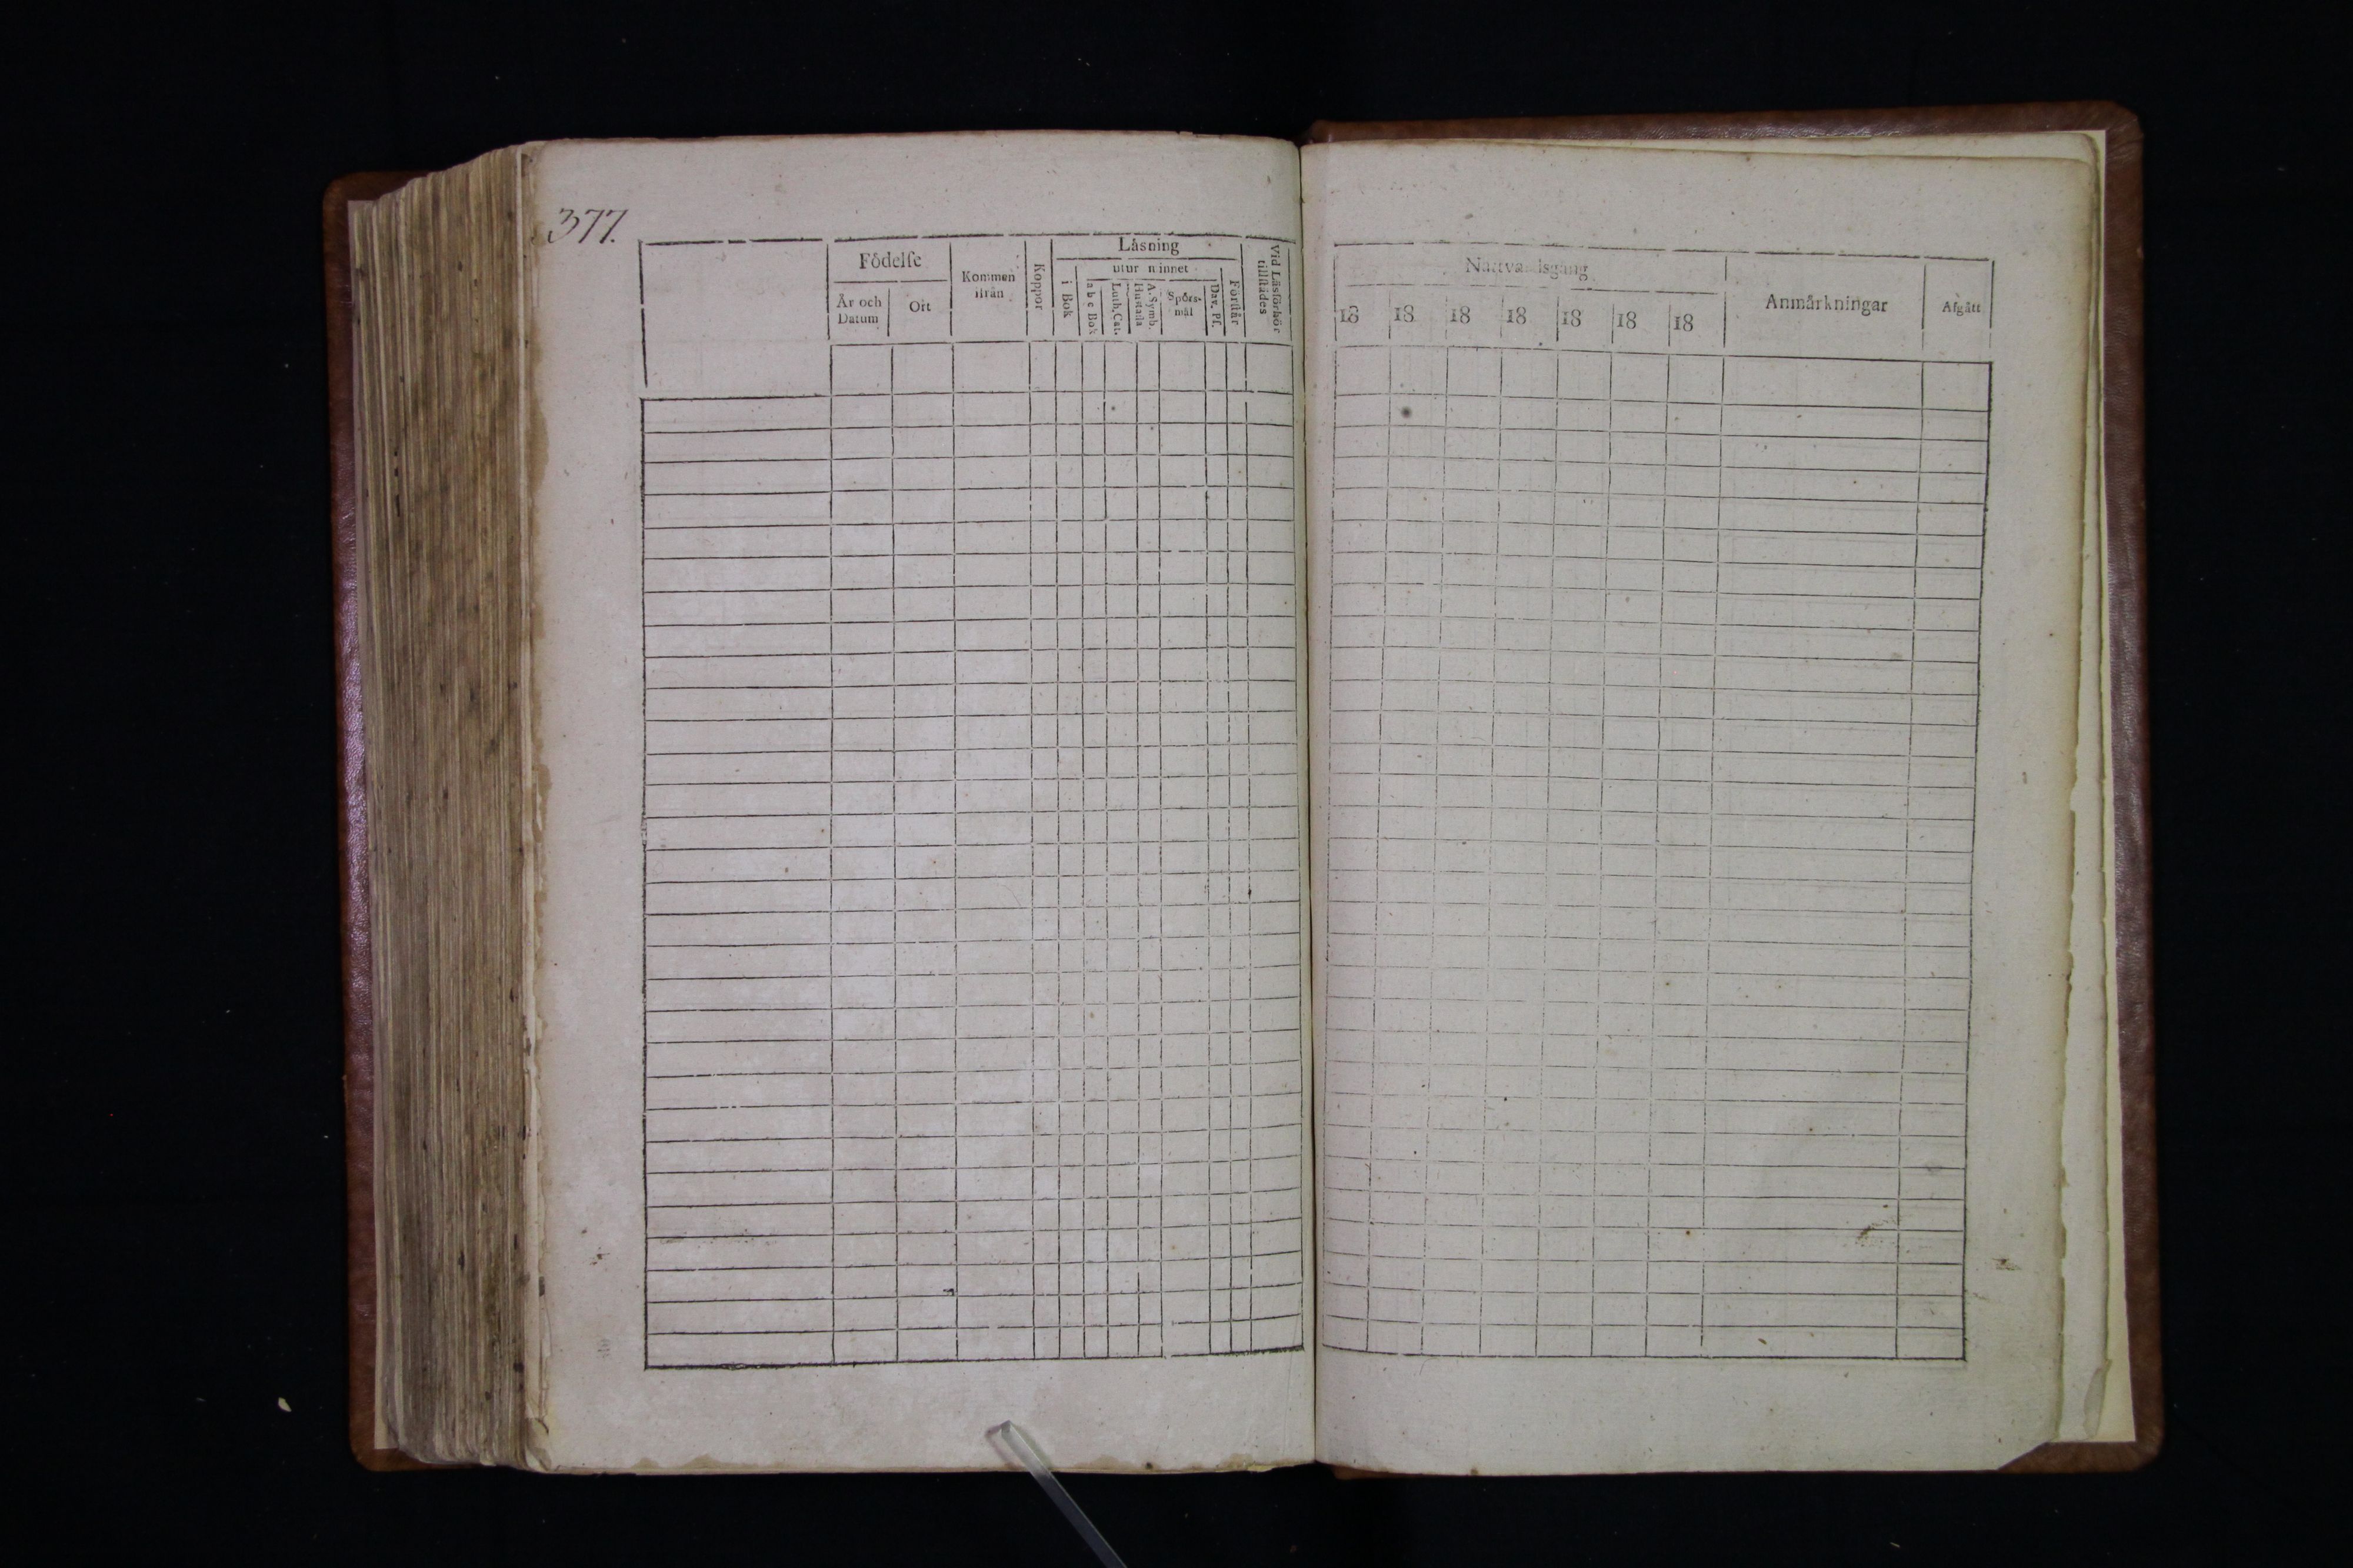 377.
Födelse
År och Datum
Ort
Kommen ifrån
Koppor
Läsning
i Bok
utur minnet
abc Bok
Luth. Cat.
A. Symb.
Hustafla
Spörs-
mål
Dav. Ps.
Förstår
Vid Läsförhör
tillstädes
Nattvardsgång
18 18 18 18 18 18 18
Anmärkningar
Afgått